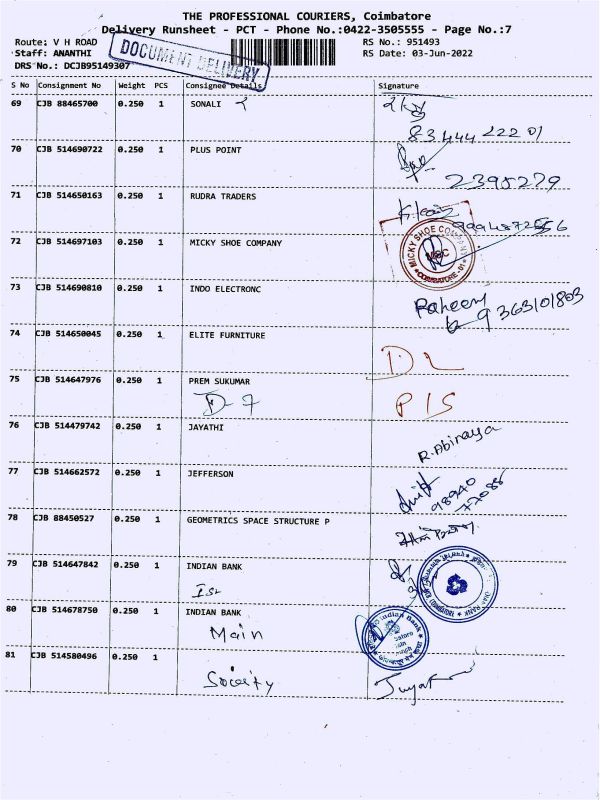 THE PROFESSIONAL COURIERS, Coimbatore
Delivery Runsheet - PCT - Phone No.:0422-3505555 - Page No.:7
Route: V H ROAD RS No.: 951493
Staff: ANANTHI RS Date: 03-Jun-2022
DRS No.: DCJB95149307
DOCUMENT DELIVERY
S No Consignment No Weight PCS Consignee Details Signature
69 CJB 88465700 0.250 1 SONALI
83444 222 01
70 CJB 514690722 0.250 1 PLUS POINT
2395279
71 CJB 514650163 0.250 1 RUDRA TRADERS
72 CJB 514697103 0.250 1 MICKY SHOE COMPANY
MICKY SHOE COMPANY
MSC
COIMBATORE
73 CJB 514690810 0.250 1 INDO ELECTRONC
Raheem
9363101803
74 CJB 514650045 0.250 1 ELITE FURNITURE
DL
75 CJB 514647976 0.250 1 PREM SUKUMAR
D-7 P/S
76 CJB 514479742 0.250 1 JAYATHI
R.Abinaya
77 CJB 514662572 0.250 1 JEFFERSON
98940
77088
78 CJB 88450527 0.250 1 GEOMETRICS SPACE STRUCTURE P
79 CJB 514647842 0.250 1 INDIAN BANK
80 CJB 514678750 0.250 1 INDIAN BANK
Main
Indian Bank
81 CJB 514580496 0.250 1
Society